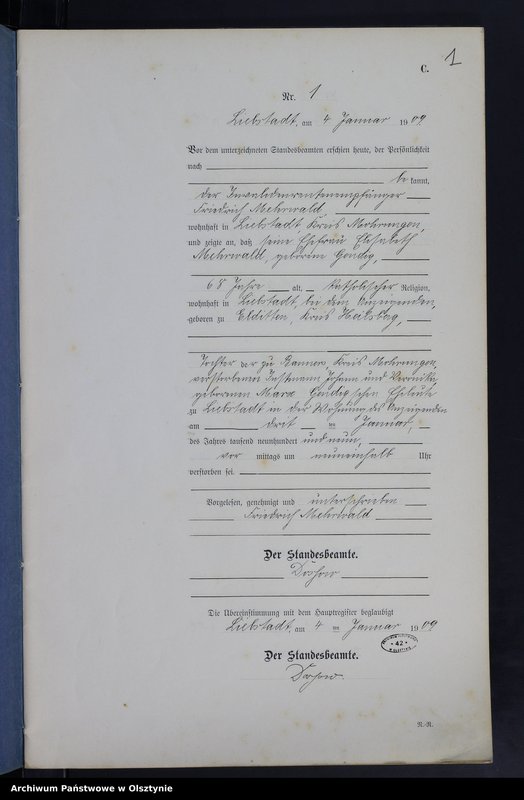 1
C.
Nr. 1
Liebstadt, am 4 Januar 1909
Vor dem unterzeichneten Standesbeamten erschien heute, der Persönlichkeit
nach
be kannt,
der Invalidenrentenempfänger
Friedrich Mehrwald
wohnhaft in Liebstadt, Kreis Mohrungen,
und zeigte an, daß seine Ehefrau Elisabeth
Mehrwald, geborene
68 Jahre alt, katholischer Religion,
wohnhaft in Liebstadt, bei dem Anzeigenden,
geboren zu Elditten, Kreis Heilsberg,
Tochter der zu Kreis Mohrungen,
verstorbenen Instmann Johann und Veronika,
geborenen schen Eheleute
zu Liebstadt in der Wohnung des Anzeigenden
am drei ten Januar,
des Jahres tausend neunhundert und neun,
vor mittags um neuneinhalb Uhr
verstorben sei.
Vorgelesen, genehmigt und unterschrieben
Friedrich Mehrwald
Der Standesbeamte.
Die Übereinstimmung mit dem Hauptregister beglaubigt
Liebstadt, am 4 ten Januar 1909
Der Standesbeamte.
42
N.-N.
Archiwum Państwowe w Olsztynie